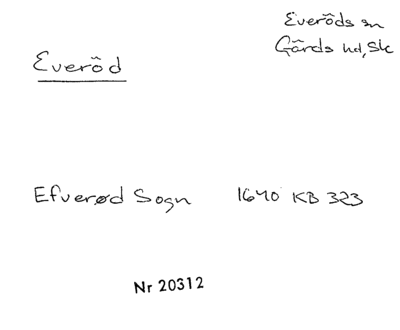 Everöds sn
Gärds hd, Sk
Everöd
Efverød Sogn 1640 KB 323
Nr 20312